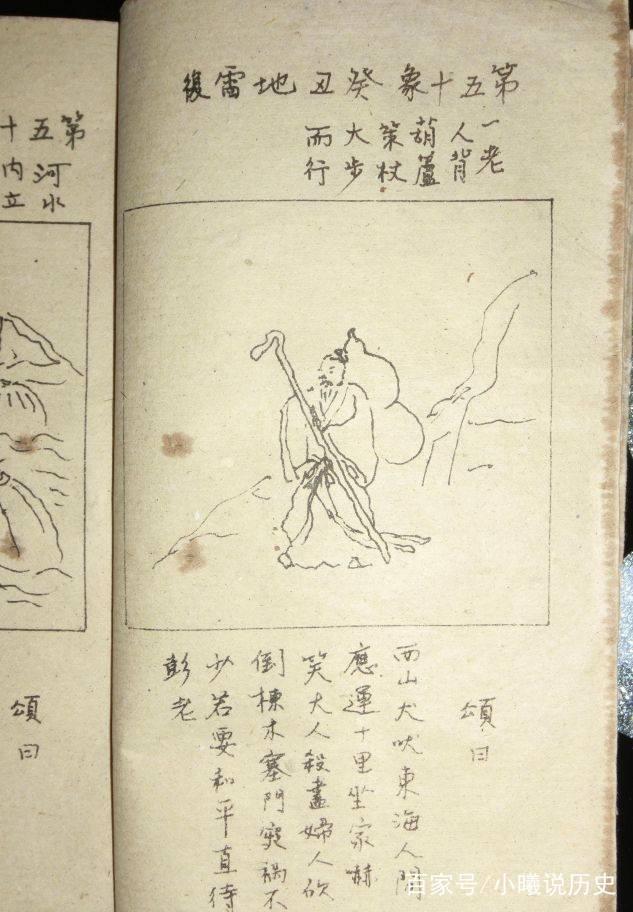 第五十象 癸丑 地雷復
一老
人背
葫蘆
策杖
大步
而行
頌曰
西山犬吠東海人閙
應運十里坐家嚇
笑大人殺盡婦人砍
倒棟木塞門竇禍不
少若要和平直待
彭老
第五十
河水
内立
頌曰
百家号/小曦说历史